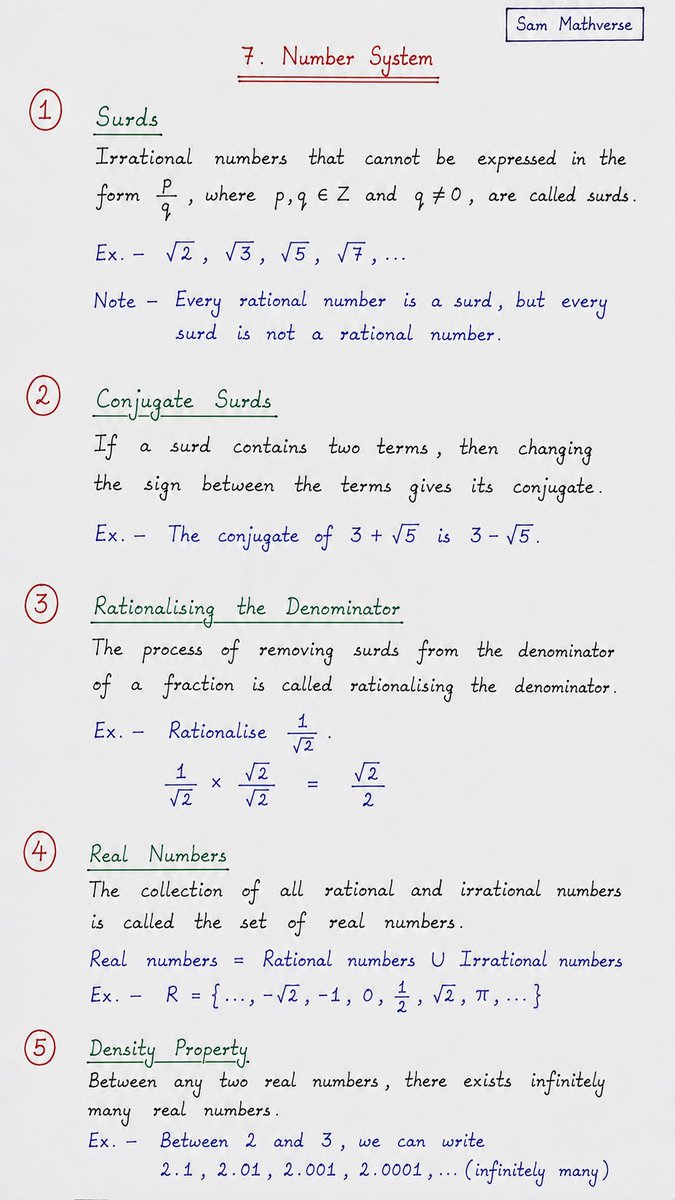 Sam Mathverse
7. Number System
1 Surds
Irrational numbers that cannot be expressed in the
form p/q , where p, q ∈ Z and q ≠ 0 , are called surds.
Ex. – √2 , √3 , √5 , √7 , ...
Note – Every rational number is a surd, but every
surd is not a rational number.
2 Conjugate Surds
If a surd contains two terms, then changing
the sign between the terms gives its conjugate.
Ex. – The conjugate of 3 + √5 is 3 – √5.
3 Rationalising the Denominator
The process of removing surds from the denominator
of a fraction is called rationalising the denominator.
Ex. – Rationalise 1/√2 .
1/√2 × √2/√2 = √2/2
4 Real Numbers
The collection of all rational and irrational numbers
is called the set of real numbers.
Real numbers = Rational numbers ∪ Irrational numbers
Ex. – R = {..., -√2, -1, 0, 1/2, √2, π, ...}
5 Density Property
Between any two real numbers, there exists infinitely
many real numbers.
Ex. – Between 2 and 3, we can write
2.1, 2.01, 2.001, 2.0001, ... (infinitely many)